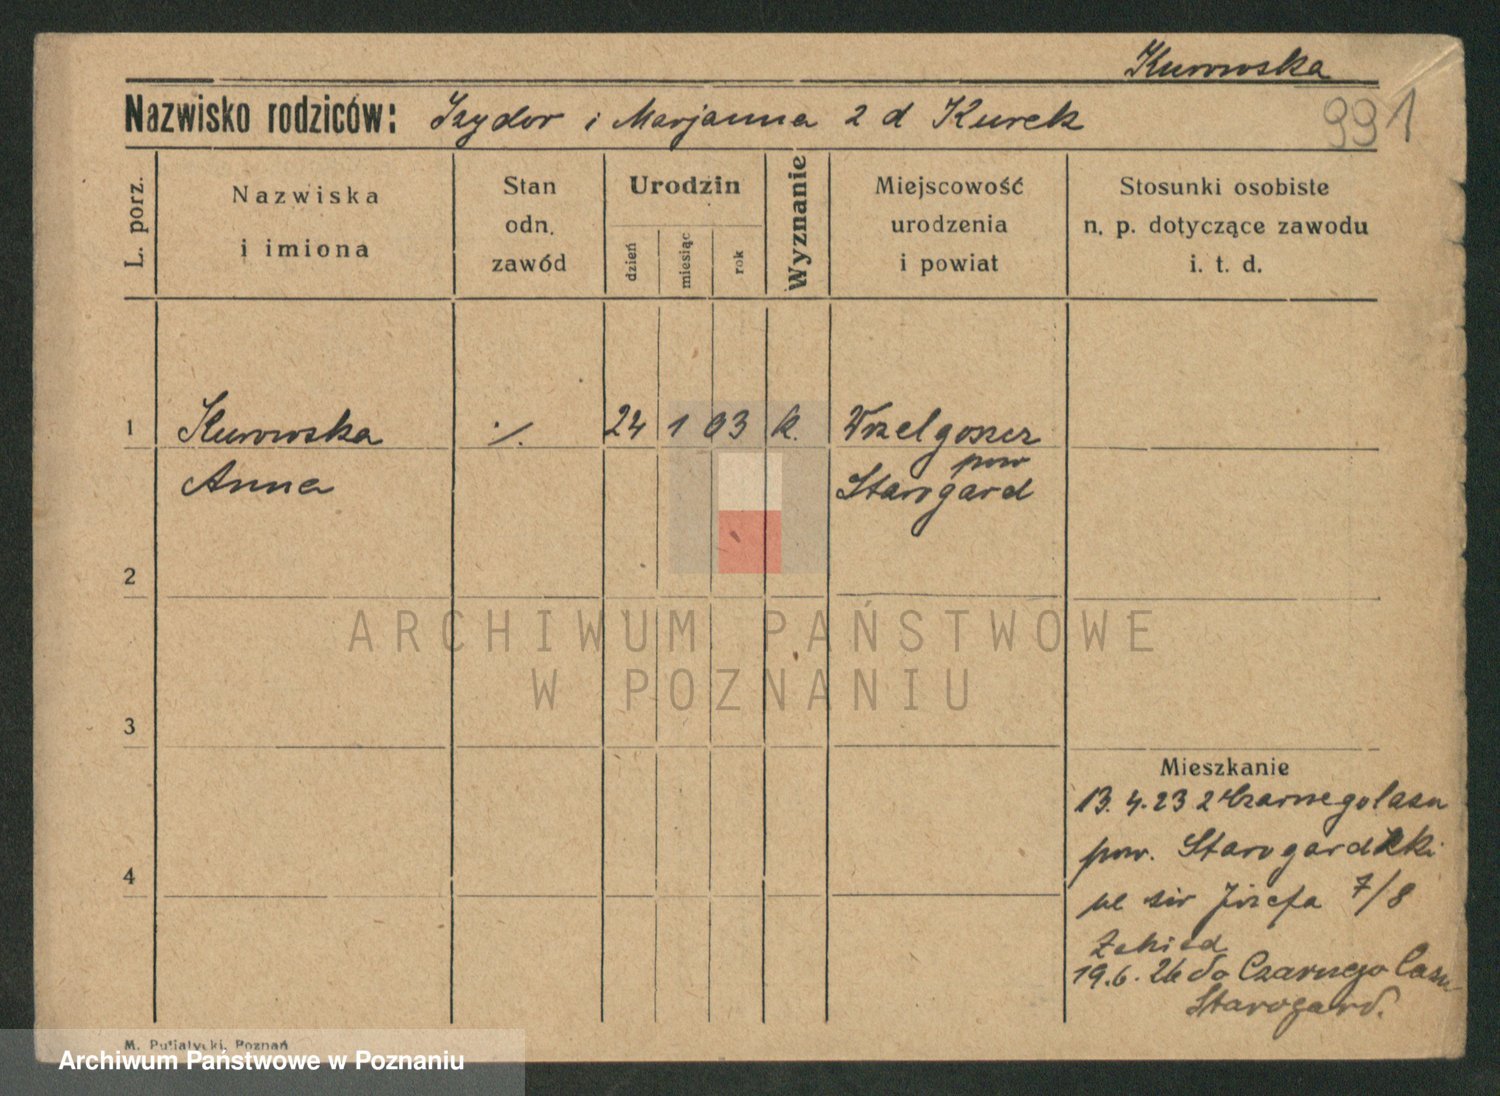 Kurowska
Nazwisko rodziców: Izydor i Marjanna z d Kurek
991
L. porz.
Nazwiska
i imiona
Stan
odn.
zawód
Urodzin
dzień
miesiąc
rok
Wyznanie
Miejscowość
urodzenia
i powiat
Stosunki osobiste
n. p. dotyczące zawodu
i. t. d.
1 Kurowska ./. 24 1 03 k.
pow
Anna Starogard
2
ARCHIWUM PAŃSTWOWE
W POZNANIU
3
Mieszkanie
13.4.23 z Czarnegolasu
4
pow. Starogardzki
ul św Józefa 7/8
19.6.26 do Czarnego Lasu
Starogard.
M. Putiatycki, Poznań
Archiwum Państwowe w Poznaniu